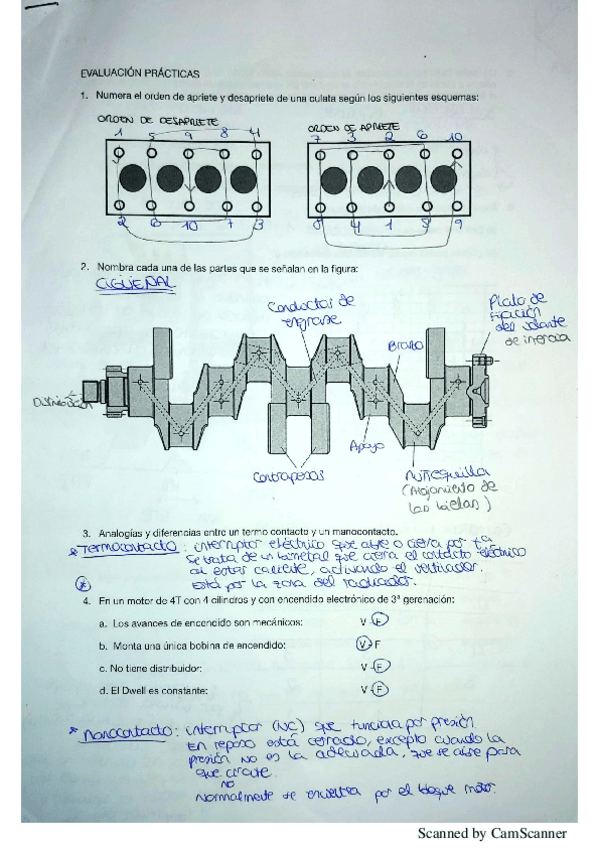 EVALUACIÓN PRÁCTICAS
1. Numera el orden de apriete y desapriete de una culata según los siguientes esquemas:
ORDEN DE DESAPRIETE
1 5 9 8 4
2 6 10 7 3
ORDEN DE APRIETE
7 3 2 6 10
8 4 1 5 9
2. Nombra cada una de las partes que se señalan en la figura:
CIGÜEÑAL
Conductos de
engrase
Brazo
Plato de
fijación
del volante
de inercia
Distribución
Apoyo
Contrapesos
Muñequilla
(Alojamiento de
las bielas)
3. Analogías y diferencias entre un termo contacto y un manocontacto.
* Termocontacto: interruptor eléctrico que abre o cierra por Tª
Se trata de un bimetal que cierra el contacto eléctrico
al estar caliente, activando el ventilador.
Está por la zona del radiador.
*
4. En un motor de 4T con 4 cilindros y con encendido electrónico de 3ª gerenación:
a. Los avances de encendido son mecánicos: V F
b. Monta una única bobina de encendido: V F
c. No tiene distribuidor: V F
d. El Dwell es constante: V F
* Manocontacto: interruptor (NC) que funciona por presión
En reposo está cerrado, excepto cuando la
presión no es la adecuada, que se abre para
que circule.
no
Normalmente se encuentra por el bloque motor.
Scanned by CamScanner